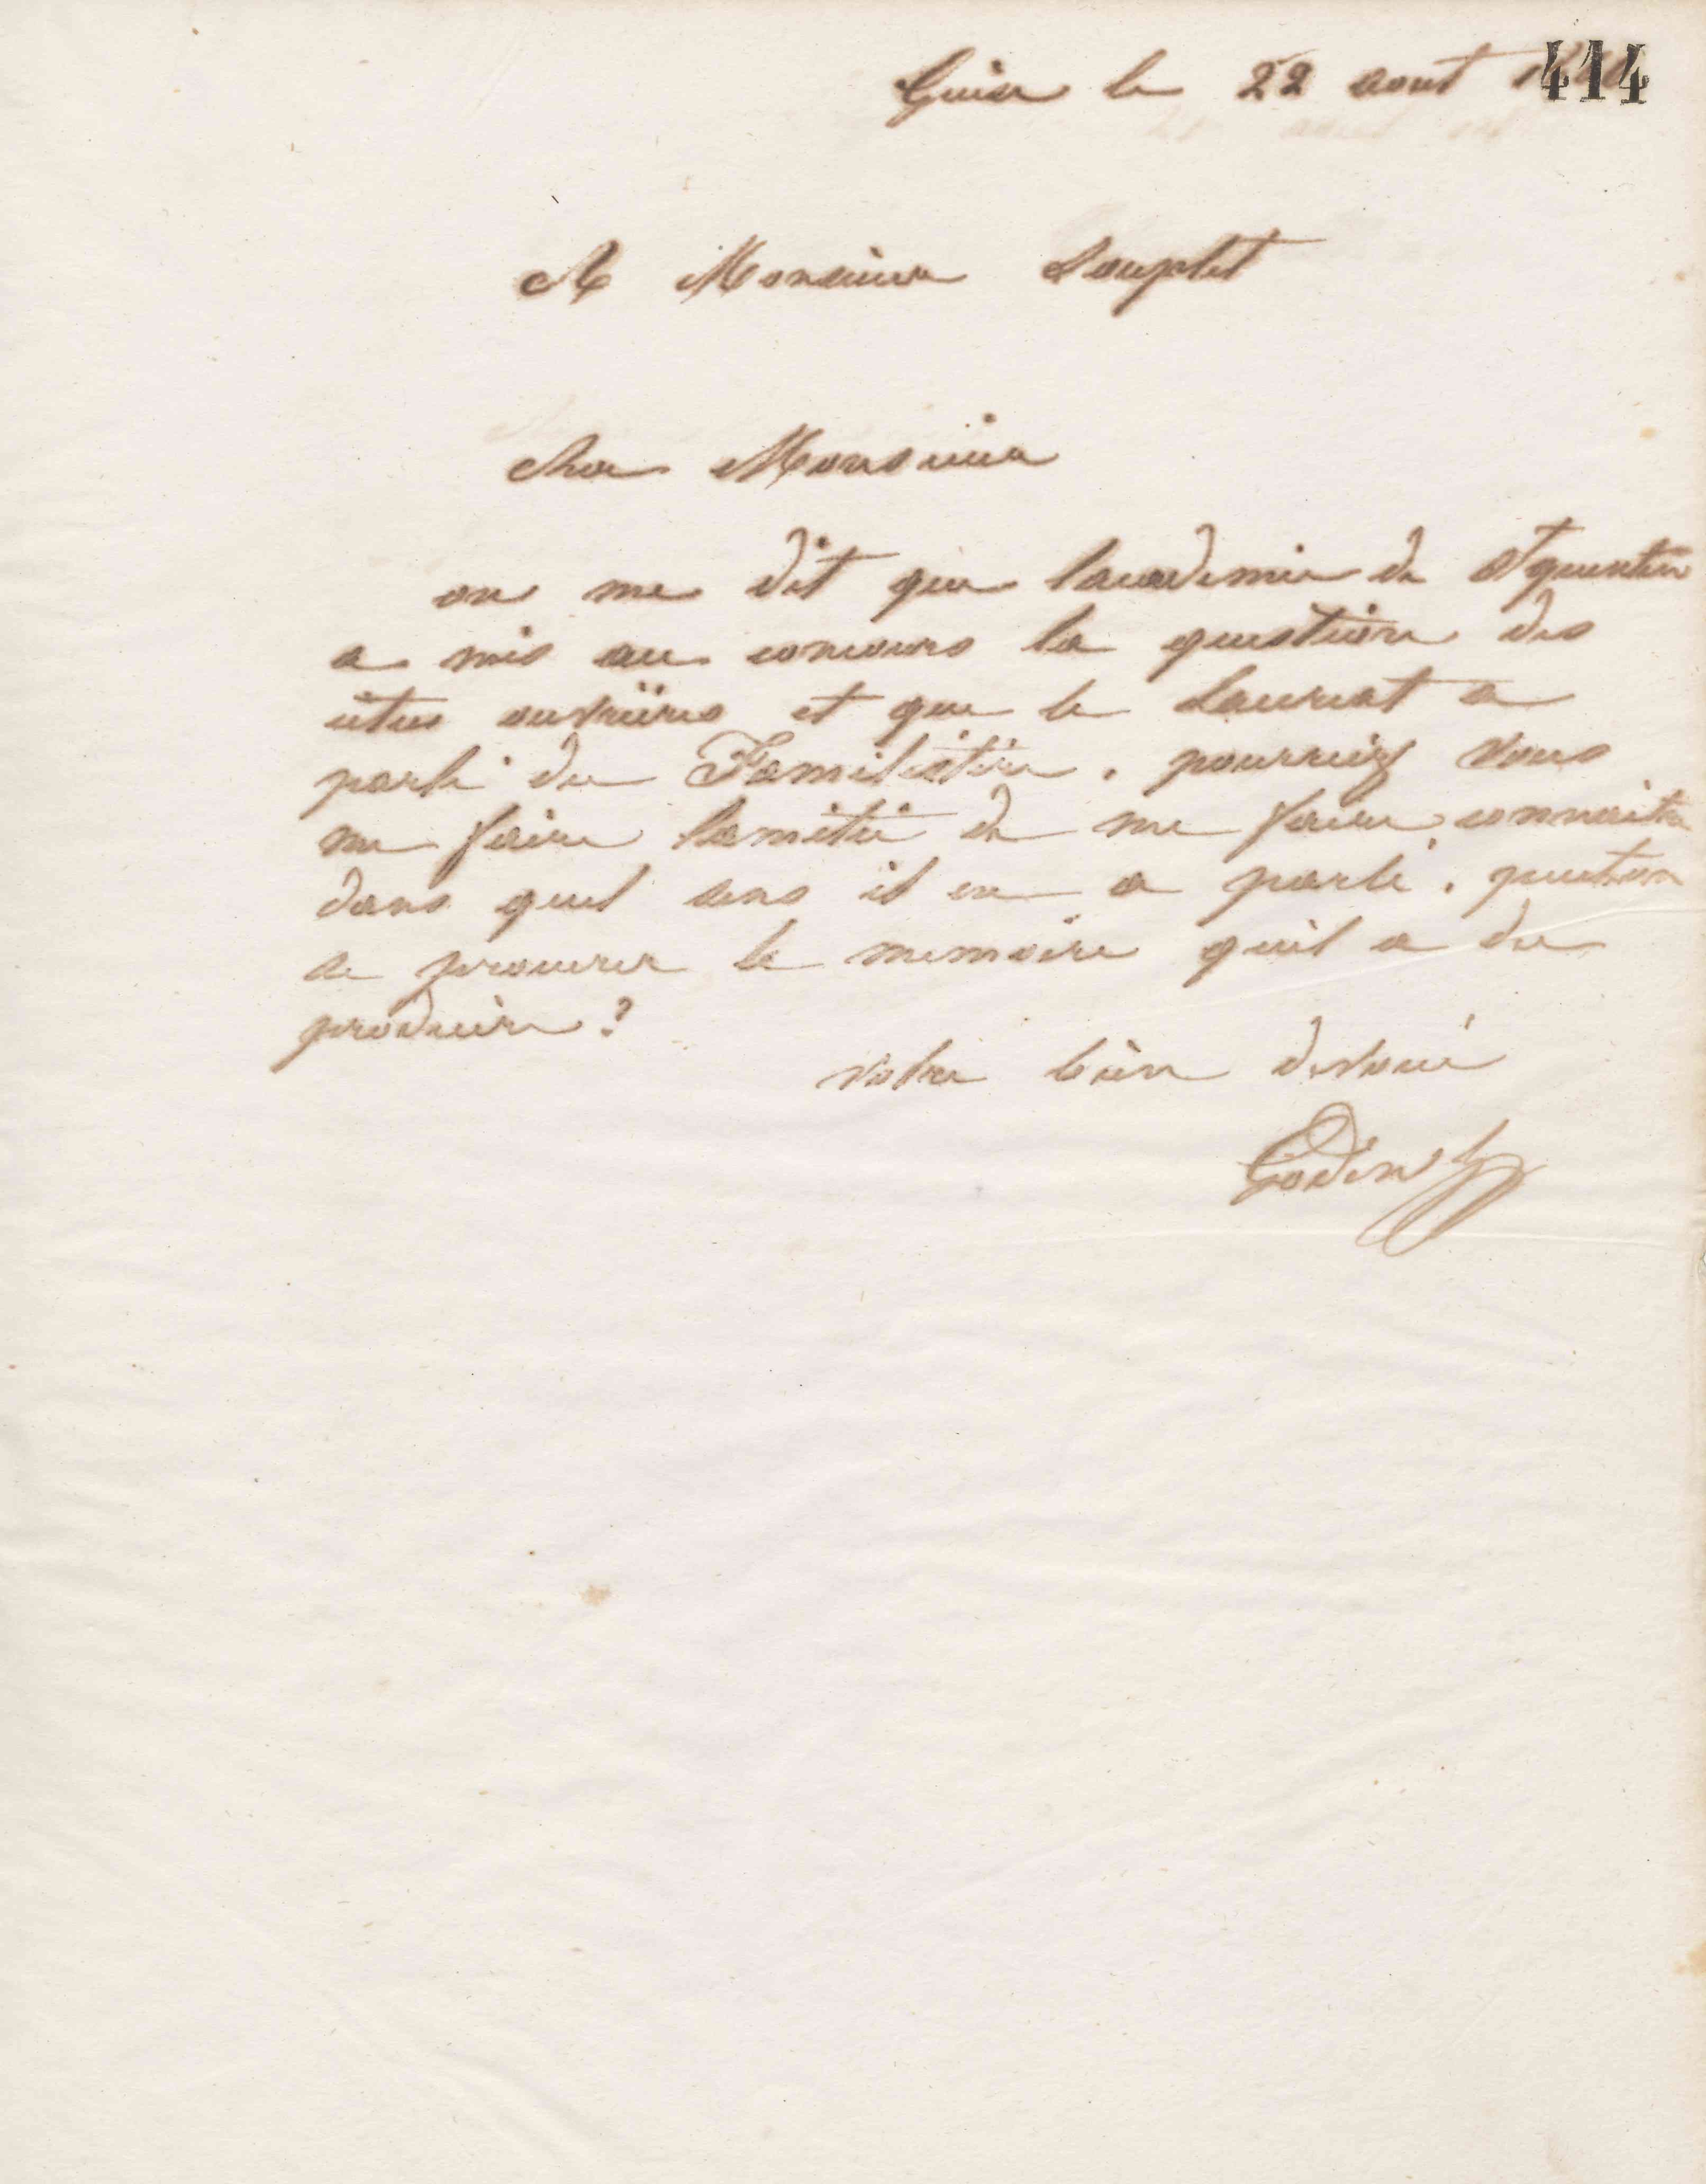 Guise le 22 aout
414
A Monsieur Souplet
Cher Monsieur
on me dit que lacademie de St quentin
a mis au concours la question des
cités ouvrières et que le Lauréat a
parlé du Familistère. pourriez vous
me faire lamitié de me faire connaitre
dans quel sens il en a parlé. peut on
se procurer le memoire quil a du
produire ?
votre bien devoué
Godin